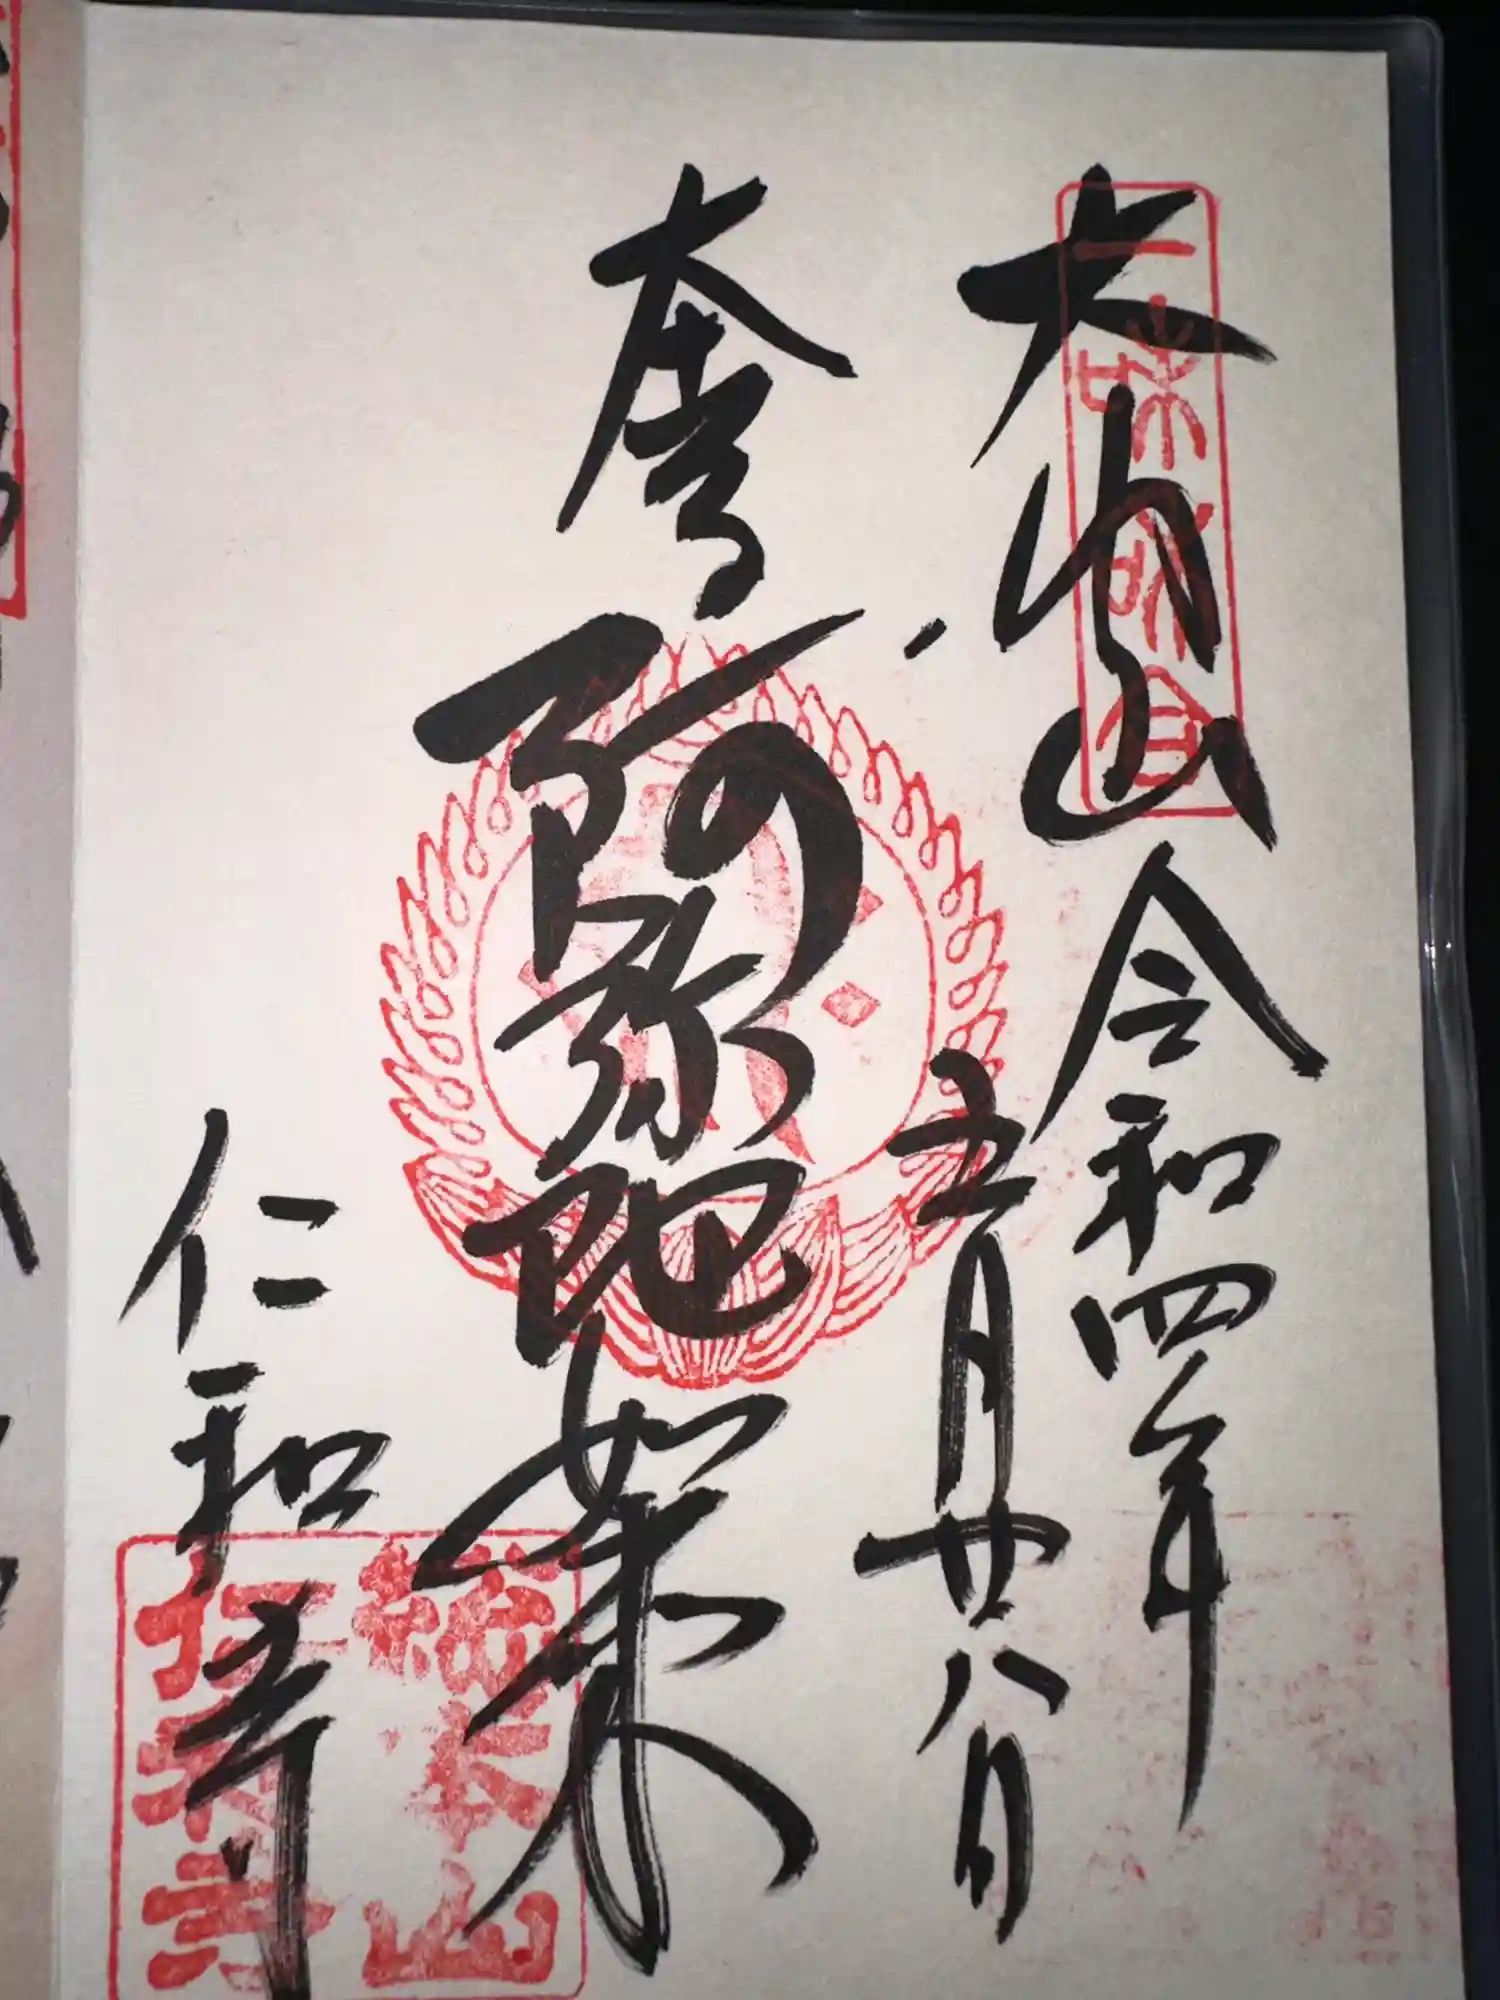 一味和合
大内山 令和四年
五月廿八日
阿弥陀如来
仁和寺
総本山
仁和寺